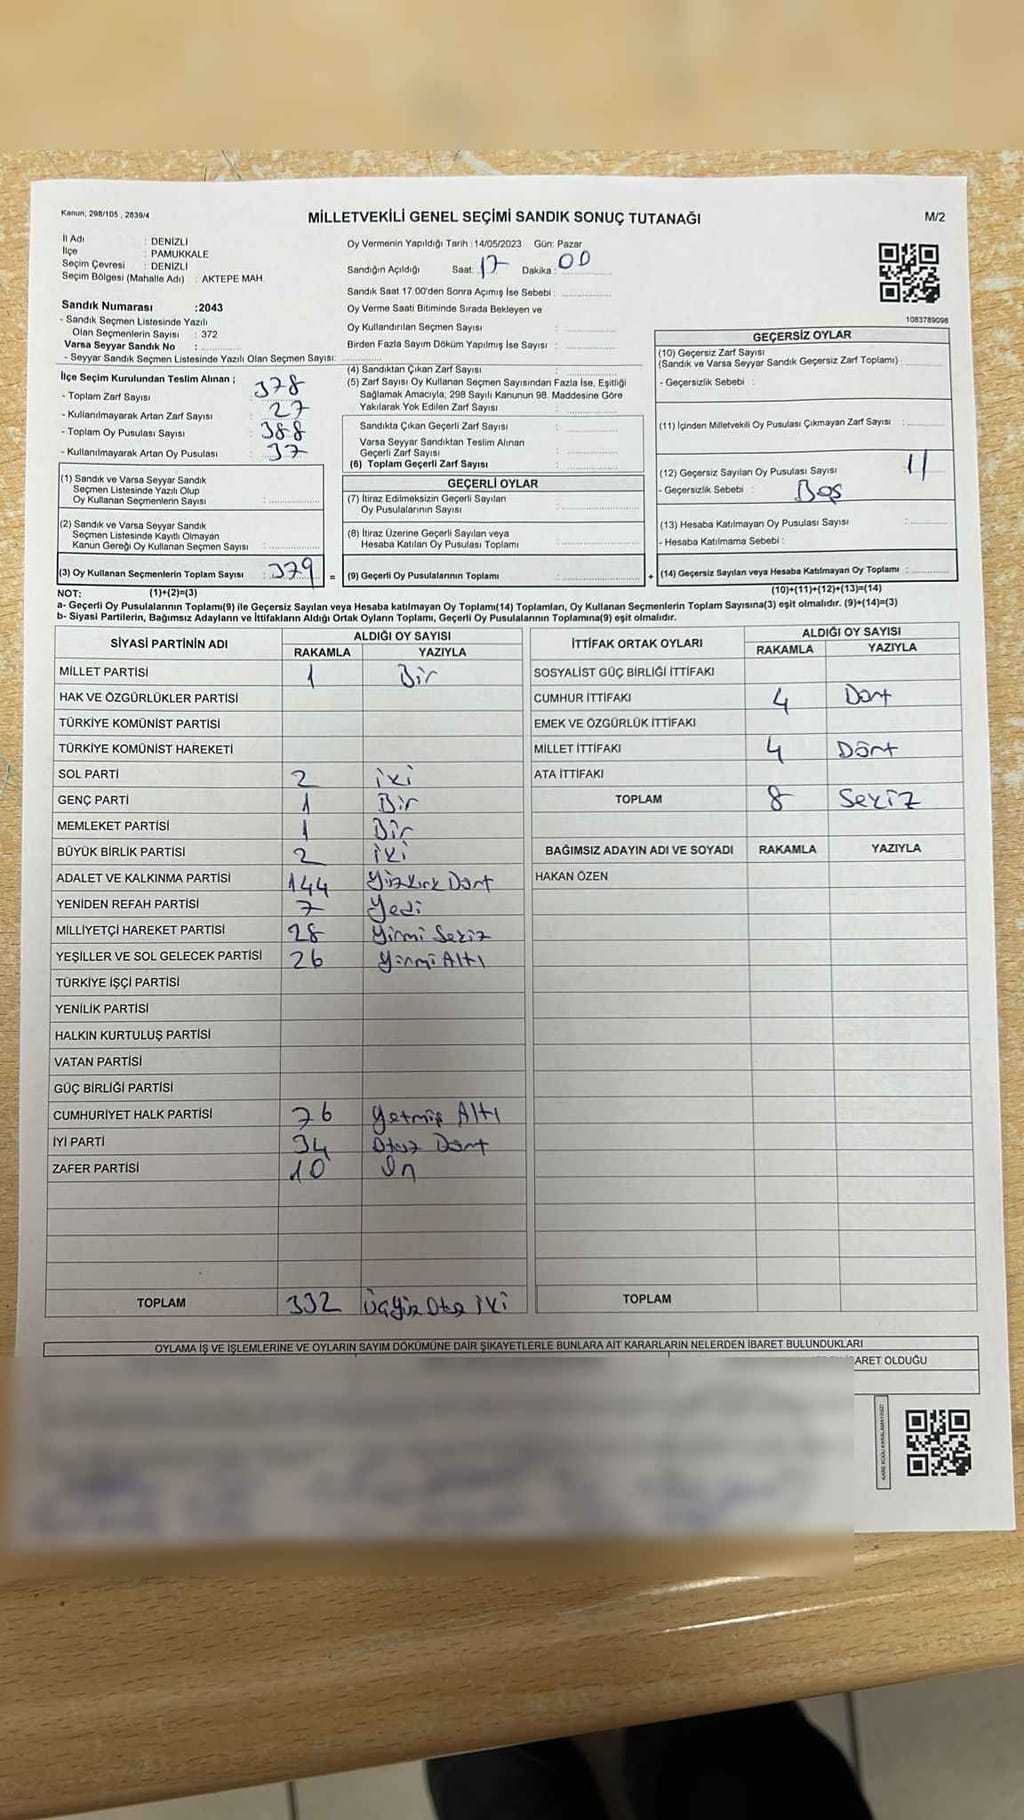 Kanun; 298/105 , 2839/4
MİLLETVEKİLİ GENEL SEÇİMİ SANDIK SONUÇ TUTANAĞI
M/2
İl Adı : DENİZLİ
İlçe : PAMUKKALE
Seçim Çevresi : DENİZLİ
Seçim Bölgesi (Mahalle Adı) : AKTEPE MAH
Sandık Numarası :2043
- Sandık Seçmen Listesinde Yazılı
Olan Seçmenlerin Sayısı : 372
Varsa Seyyar Sandık No :
- Seyyar Sandık Seçmen Listesinde Yazılı Olan Seçmen Sayısı:
Oy Vermenin Yapıldığı Tarih :14/05/2023 Gün: Pazar
Sandığın Açıldığı Saat: 17 Dakika : 00
Sandık Saat 17.00'den Sonra Açımış İse Sebebi :
Oy Verme Saati Bitiminde Sırada Bekleyen ve
Oy Kullandırılan Seçmen Sayısı :
Birden Fazla Sayım Döküm Yapılmış İse Sayısı :
1083789098
İlçe Seçim Kurulundan Teslim Alınan ;
- Toplam Zarf Sayısı : 378
- Kullanılmayarak Artan Zarf Sayısı : 27
- Toplam Oy Pusulası Sayısı : 388
- Kullanılmayarak Artan Oy Pusulası : 37
(1) Sandık ve Varsa Seyyar Sandık
Seçmen Listesinde Yazılı Olup
Oy Kullanan Seçmenlerin Sayısı :
(2) Sandık ve Varsa Seyyar Sandık
Seçmen Listesinde Kayıtlı Olmayan
Kanun Gereği Oy Kullanan Seçmen Sayısı :
(3) Oy Kullanan Seçmenlerin Toplam Sayısı : 379 =
(4) Sandıktan Çıkan Zarf Sayısı :
(5) Zarf Sayısı Oy Kullanan Seçmen Sayısından Fazla İse, Eşitliği
Sağlamak Amacıyla, 298 Sayılı Kanunun 98. Maddesine Göre
Yakılarak Yok Edilen Zarf Sayısı :
Sandıkta Çıkan Geçerli Zarf Sayısı :
Varsa Seyyar Sandıktan Teslim Alınan
Geçerli Zarf Sayısı :
(6) Toplam Geçerli Zarf Sayısı :
GEÇERLİ OYLAR
(7) İtiraz Edilmeksizin Geçerli Sayılan
Oy Pusulalarının Sayısı :
(8) İtiraz Üzerine Geçerli Sayılan veya
Hesaba Katılan Oy Pusulası Toplamı :
(9) Geçerli Oy Pusulalarının Toplamı : +
GEÇERSİZ OYLAR
(10) Geçersiz Zarf Sayısı
(Sandık ve Varsa Seyyar Sandık Geçersiz Zarf Toplamı) :
- Geçersizlik Sebebi :
(11) İçinden Milletvekili Oy Pusulası Çıkmayan Zarf Sayısı :
(12) Geçersiz Sayılan Oy Pusulası Sayısı : 11
- Geçersizlik Sebebi : Boş
(13) Hesaba Katılmayan Oy Pusulası Sayısı :
- Hesaba Katılmama Sebebi :
(14) Geçersiz Sayılan veya Hesaba Katılmayan Oy Toplamı :
NOT: (1)+(2)=(3)
(10)+(11)+(12)+(13)=(14)
a- Geçerli Oy Pusulalarının Toplamı(9) ile Geçersiz Sayılan veya Hesaba katılmayan Oy Toplamı(14) Toplamları, Oy Kullanan Seçmenlerin Toplam Sayısına(3) eşit olmalıdır. (9)+(14)=(3)
b- Siyasi Partilerin, Bağımsız Adayların ve İttifakların Aldığı Ortak Oyların Toplamı, Geçerli Oy Pusulalarının Toplamına(9) eşit olmalıdır.
SİYASİ PARTİNİN ADI ALDIĞI OY SAYISI
RAKAMLA YAZIYLA
MİLLET PARTİSİ 1 Bir
HAK VE ÖZGÜRLÜKLER PARTİSİ
TÜRKİYE KOMÜNİST PARTİSİ
TÜRKİYE KOMÜNİST HAREKETİ
SOL PARTİ 2 iki
GENÇ PARTİ 1 Bir
MEMLEKET PARTİSİ 1 Bir
BÜYÜK BİRLİK PARTİSİ 2 iki
ADALET VE KALKINMA PARTİSİ 144 Yüzkırk Dört
YENİDEN REFAH PARTİSİ 7 Yedi
MİLLİYETÇİ HAREKET PARTİSİ 28 Yirmi Sekiz
YEŞİLLER VE SOL GELECEK PARTİSİ 26 Yirmi Altı
TÜRKİYE İŞÇİ PARTİSİ
YENİLİK PARTİSİ
HALKIN KURTULUŞ PARTİSİ
VATAN PARTİSİ
GÜÇ BİRLİĞİ PARTİSİ
CUMHURİYET HALK PARTİSİ 76 Yetmiş Altı
İYİ PARTİ 34 Otuz Dört
ZAFER PARTİSİ 10 On
TOPLAM 332 Üçyüz Otuz iki
İTTİFAK ORTAK OYLARI ALDIĞI OY SAYISI
RAKAMLA YAZIYLA
SOSYALİST GÜÇ BİRLİĞİ İTTİFAKI
CUMHUR İTTİFAKI 4 Dört
EMEK VE ÖZGÜRLÜK İTTİFAKI
MİLLET İTTİFAKI 4 Dört
ATA İTTİFAKI
TOPLAM 8 Sekiz
BAĞIMSIZ ADAYIN ADI VE SOYADI RAKAMLA YAZIYLA
HAKAN ÖZEN
TOPLAM
OYLAMA İŞ VE İŞLEMLERİNE VE OYLARIN SAYIM DÖKÜMÜNE DAİR ŞİKAYETLERLE BUNLARA AİT KARARLARIN NELERDEN İBARET BULUNDUKLARI
ARET OLDUĞU
KARE KODU KARALAMAYINIZ!